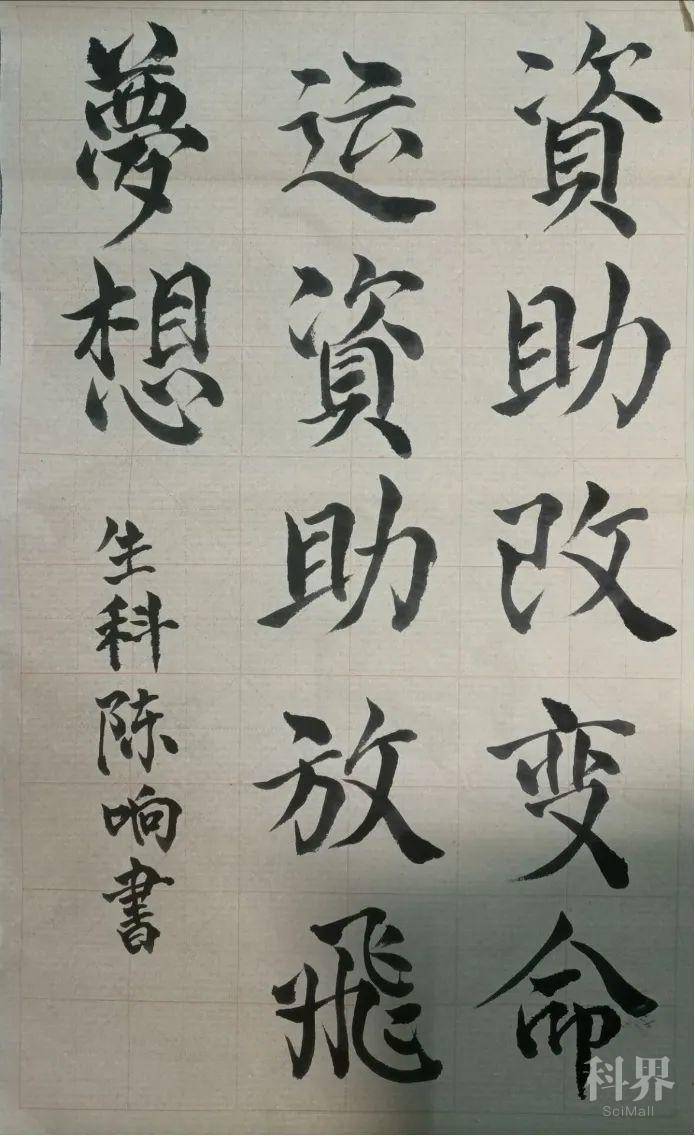 資助改变命
运資助放飛
夢想
生科陈响書
科界
SciMall